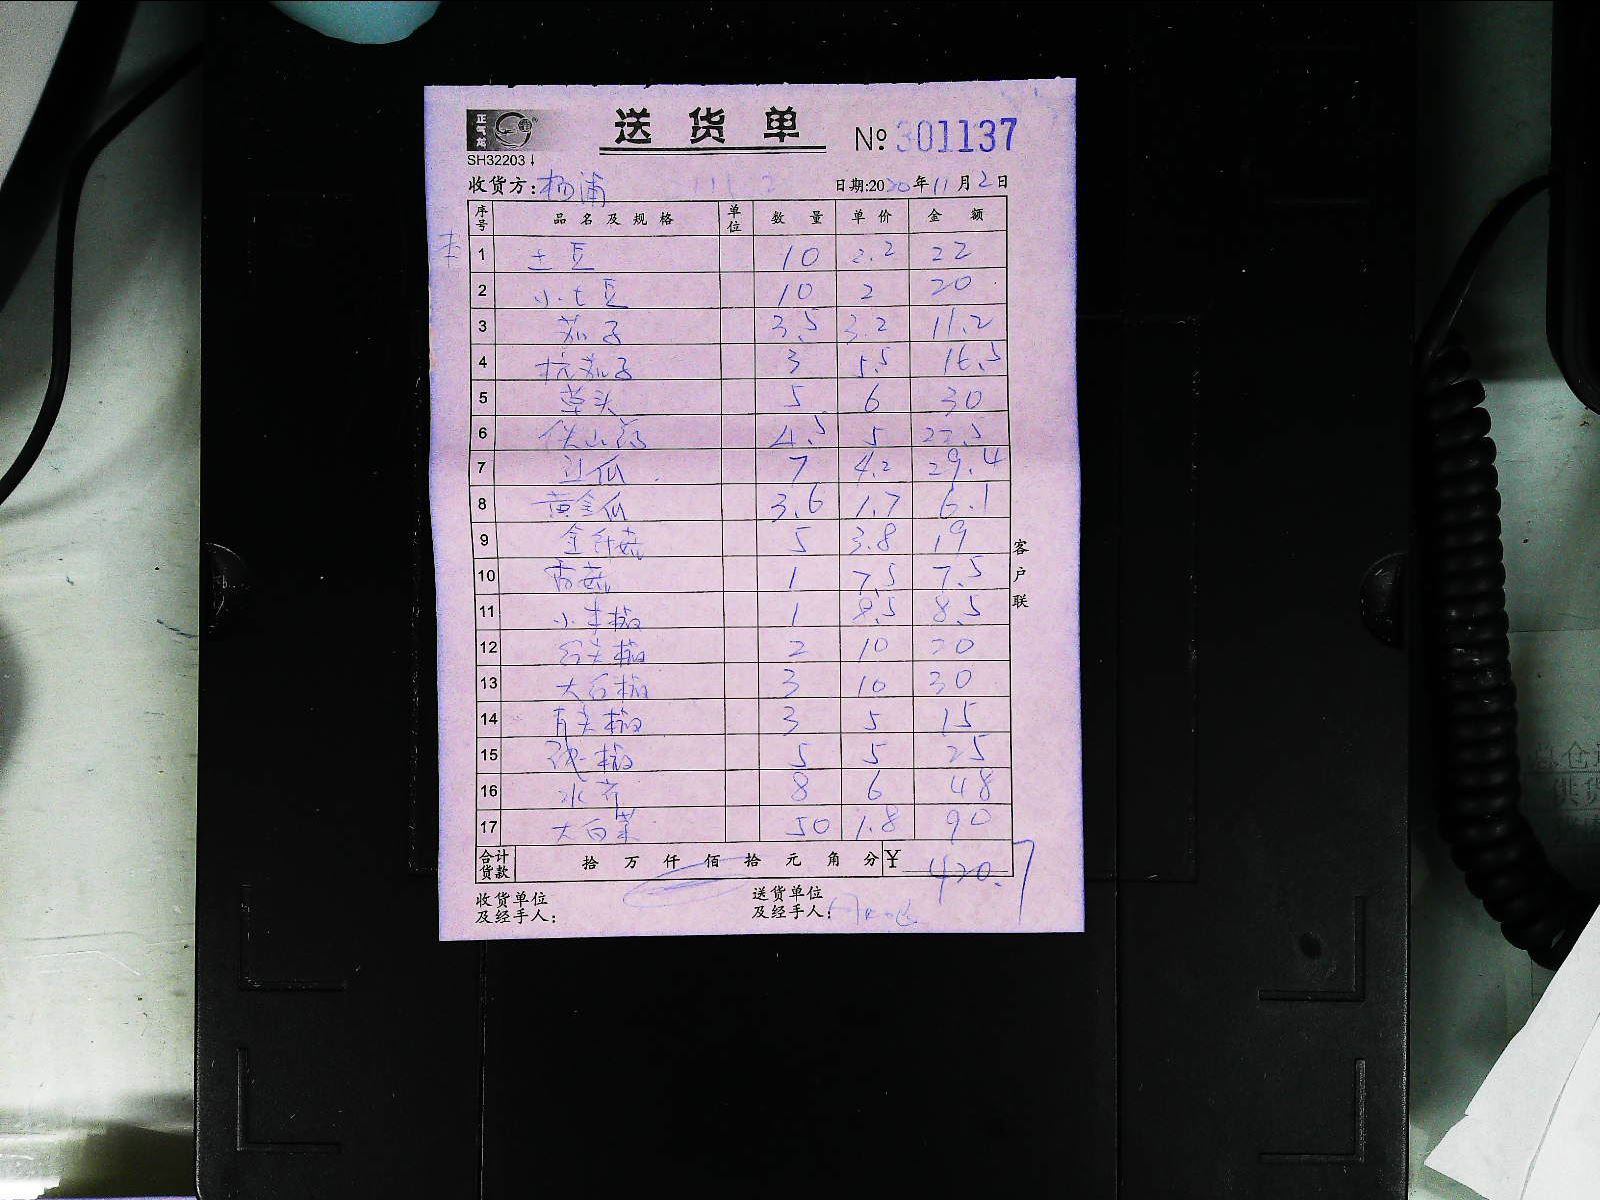 正气龙
送货单
№ 301137
SH32203↓
收货方: 杨浦 日期:2020年11月2日
序号 品名及规格 单位 数量 单价 金额
1 土豆 10 2.2 22
2 小土豆 10 2 20
3 茄子 3.5 3.2 11.2
4 杭茄子 3 5.5 16.5
5 草头 5 6 30
6 山药 4.5 5 22.5
7 瓜 7 4.2 29.4
8 黄金瓜 3.6 1.7 6.1
9 金针菇 5 3.8 19
10 香菇 1 7.5 7.5
11 小米椒 1 8.5 8.5
12 红尖椒 2 10 20
13 大红椒 3 10 30
14 青尖椒 3 5 15
15 椒 5 5 25
16 水芹 8 6 48
17 大白菜 50 1.8 90
合计货款 拾 万 仟 佰 拾 元 角 分 ¥ 420.7
客户联
收货单位及经手人: 送货单位及经手人: